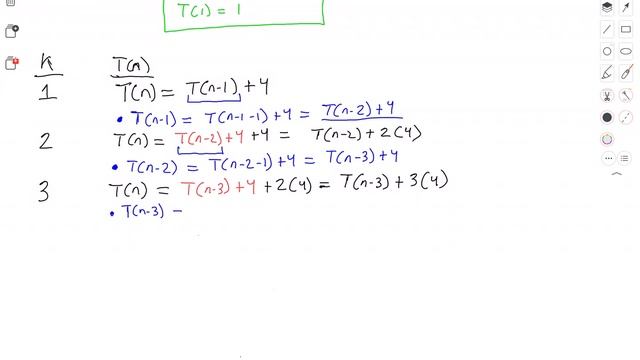 T(1) = 1
K T(n)
1 T(n) = T(n-1) + 4
• T(n-1) = T(n-1-1) + 4 = T(n-2) + 4
2 T(n) = T(n-2) + 4 + 4 = T(n-2) + 2(4)
• T(n-2) = T(n-2-1) + 4 = T(n-3) + 4
3 T(n) = T(n-3) + 4 + 2(4) = T(n-3) + 3(4)
• T(n-3) -